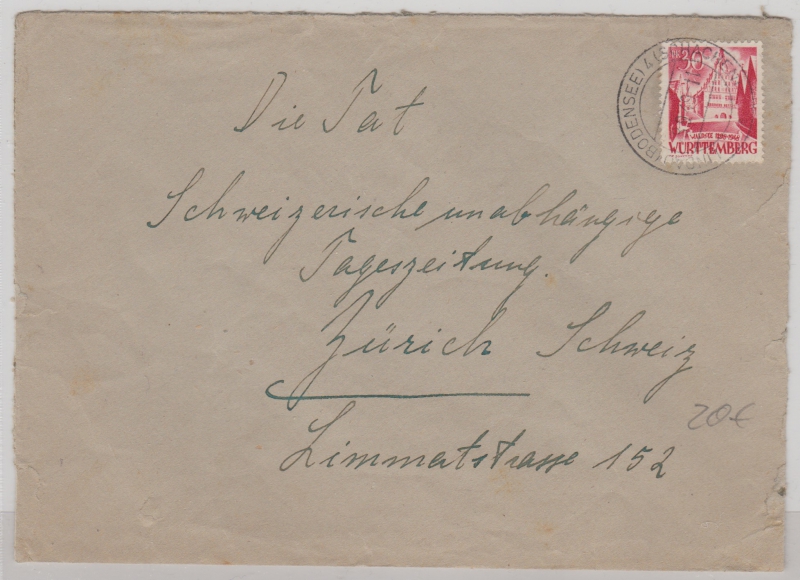 30
WÜRTTEMBERG
(BODENSEE)
Die Tat
Schweizerische unabhängige
Tageszeitung.
Zürich Schweiz
20€
Limmatstrasse 152